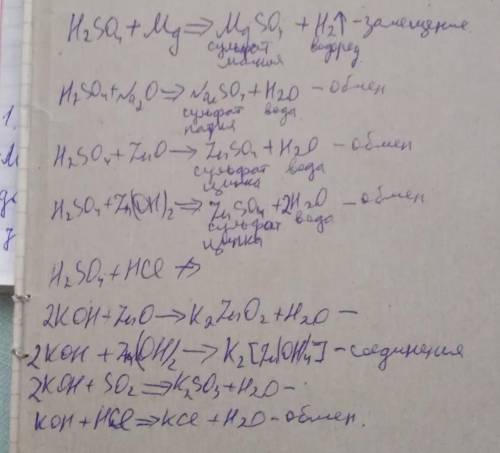 H₂SO₄ + Mg ⇒ MgSO₄ + H₂↑ - замещение
сульфат водород
магния
H₂SO₄ + Na₂O ⇒ Na₂SO₄ + H₂O - обмен
сульфат вода
натрия
1.
H₂SO₄ + ZnO → ZnSO₄ + H₂O - обмен
сульфат вода
цинка
H₂SO₄ + Zn(OH)₂ ⇒ ZnSO₄ + 2H₂O - обмен
сульфат вода
цинка
H₂SO₄ + HCl ↛
2KOH + ZnO → K₂ZnO₂ + H₂O -
2KOH + Zn(OH)₂ → K₂[Zn(OH)₄] - соединения
2KOH + SO₂ ⇒ K₂SO₃ + H₂O -
KOH + HCl ⇒ KCl + H₂O - обмен.